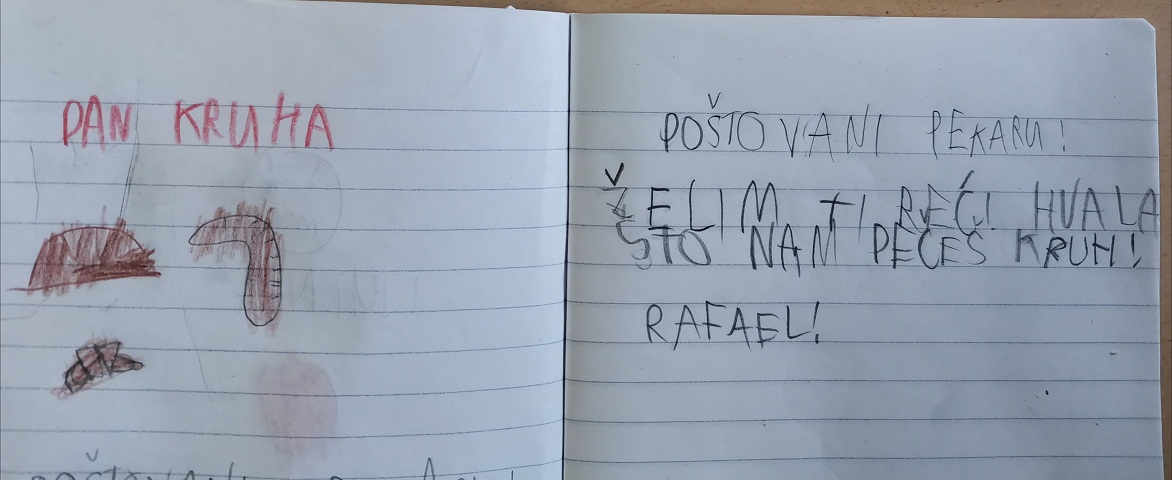 DAN KRUHA
POŠTOVANI PEKARU!
ŽELIM TI REĆI HVALA
ŠTO NAM PEČEŠ KRUH!
RAFAEL!